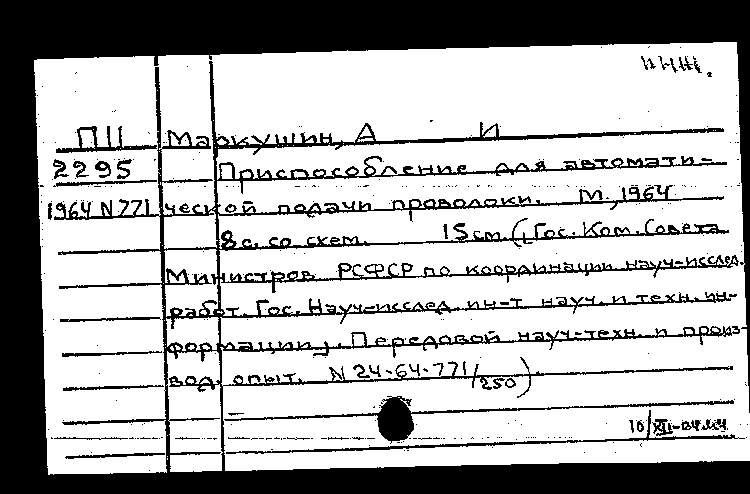 ПII Маркушин, А И
2295 Приспособление для автомати-
1964 N 771 ческой подачи проволоки. М., 1964
8 с. со схем. 15 см. (Гос. Ком. Совета
Министров РСФСР по координации науч-исслед.
работ. Гос. Науч-исслед. ин-т науч. и техн. ин-
формации). Передовой науч-техн. и произ-
вод. опыт. N 24-64-771/250)
10/XII-64